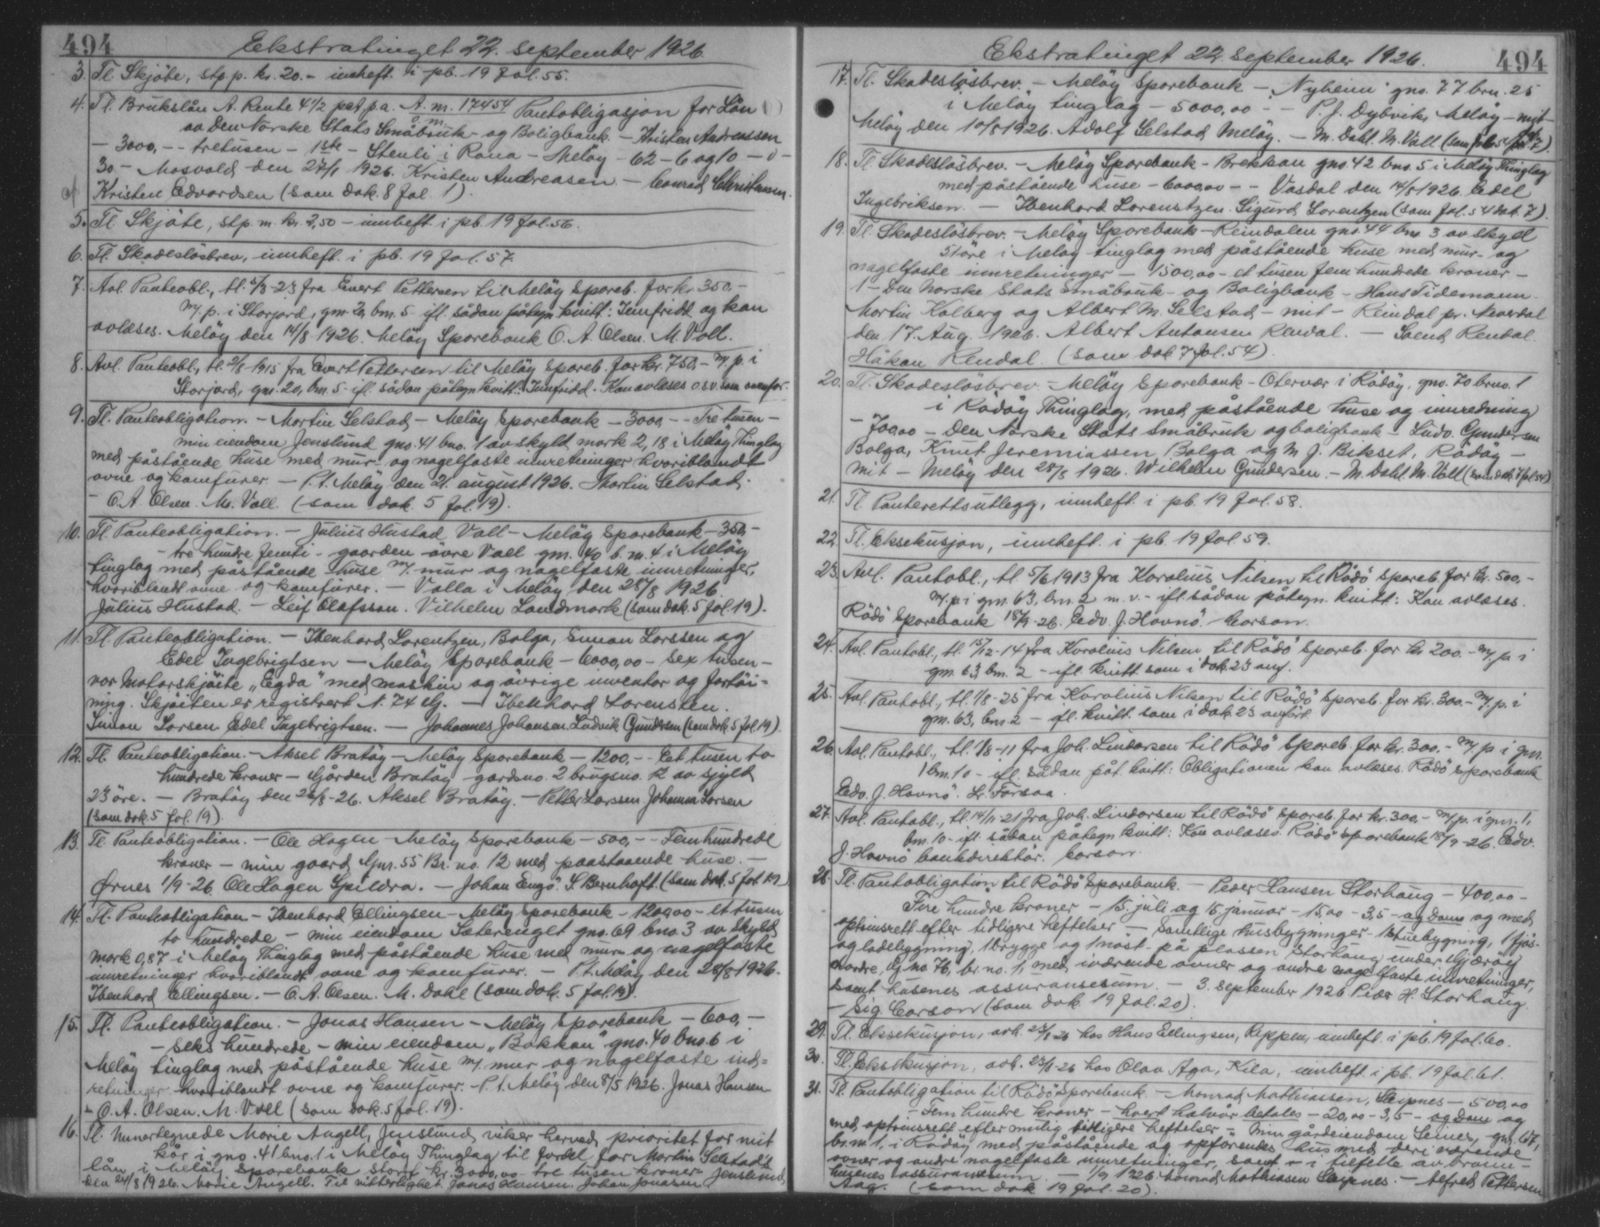 494 Ekstratinget 22. september 1926
3. Tl. Skjöte, stp. p. kr. 20.- innheft. i pb. 19 fol. 55.
4. Tl. Brukslån A. Rente 4 1/2 pct p.a. A. m. 17454 Pantobligasjon for Lån
av Den Norske Stats Småbruk- og Boligbank - Kristen Andreassen
- 3000,- - tretusen - 1ste - Stenli i Rana - Meløy - 62 - 6 og 10 - 0 -
30 - Mosvold den 27/1 1926. Kristen Andreasen - Conrad Christensen.
Kristen Edvardsen (som dok. 8 fol 1).
5. Tl. Skjöte, stp. m. kr. 2,50 - innheft i pb 19 fol. 56.
6. Tl. Skadeslösbrev, innheft. i pb. 19 fol. 57.
7. Avl. Panteobl., tl. 5/5-23 fra Evert Pettersen til Meløy Sporeb. for kr. 350.-
m/p. i Storjord, gnr. 20, bnr. 5 ifl. sådan påtegn. kvitt: Innfridt og kan
avlæses. Meløy den 14/8 1926. Meløy Sporebank O. A. Olsen. M. Voll.
8. Avl. Panteobl., tl. 2/8 1915 fra Evert Pettersen til Meløy Sporeb. for kr. 750,- m/p i
Storjord, gnr. 20, bnr. 5 ifl. sådan påtegn. kvitt: Innfridd. Kan avlæses o.s.v. som ovenfor.
9. Tl. Panteobligation. - Martin Selstad - Meløy Sporebank - 3000,- - Tre tusen -
min eiendom Jenslund gno. 41 bno. 1 av skyld mark 2,18 i Meløy Thinglag
med påstående huse med mur- og nagelfaste inretninger hvoriblandt
ovne og komfurer - P.t. Meløy den 21. august 1926. Martin Selstad.
- O. A. Olsen. M. Voll. (som dok. 5 fol. 19).
10. Tl. Panteobligation. - Julius Hustad, Voll - Meløy Sporebank - 350,-
- tre hundre femti - gaarden øvre Vael gnr. 40 b. nr. 4 i Meløy
tinglag med påstående huse m/ mur og nagelfaste innretninger,
hvoriblandt ovne og komfurer. - Valla i Meløy den 28/8 1926
Julius Hustad. - Leif Olafsson. Vilhelm Landmark (som dok. 5 fol 19).
11. Tl. Panteobligation. - Ibenhard Lorentzen, Bolga, Simon Larssen og
Edel Ingebrigtsen - Meløy Sporebank - 6000,00 - Sex tusen -
vor motorskjöite "Egda" med maskin og øvrige inventar og fortöi-
ning. Skjöiten er registrert N. 74 My. - Ibenhard Lorensten.
Simon Larsen Edel Ingebrigtsen. - Johannes Johansen. Ludvik Gundersen (som dok. 5 fol 19).
12. Tl. Panteobligation - Aksel Bratøy - Meløy Sporebank - 1200,- - Et tusen to
hundrede kroner - Gården Bratøy gardsno. 2 bruksno. 12 av skyld
23 öre. - Bratøy den 26/8-26. Aksel Bratøy. - Petter Larssen Johanna Larsen
(som dok. 5 fol. 19).
13. Tl. Panteobligation. - Ole Hagen - Meløy Sporebank - 500,- - Femhundrede
kroner - min gaard Gnr. 55 Br. no. 12 med paastaaende huse. -
Ørnes 1/9-26 Ole Hagen Spildra. - Johan Engö. S. Bernhoft. (som dok. 5 fol 19)
14. Tl. Panteobligation - Ibenhard Ellingsen - Meløy Sporebank - 1200,00 - et tusen
to hundrede - min eiendom Seterenget gno. 69 bno. 3 av skyld
mark 0,87 i Meløy Thinglag med påstående huse med mur og nagelfaste
innretninger hvoriblandt ovne og komfurer. - P.t. Meløy den 28/8 1926.
Ibenhard Ellingsen. - O. A. Olsen. M. Dahl (som dok. 5 fol. 19).
15. Tl. Panteobligation. - Jonas Hansen - Meløy Sporebank - 600,-
- seks hundrede - min eiendom "Bakkan" gno. 40 bno. 6 i
Meløy tinglag med påstående huse m/ mur og nagelfaste ind-
retninger hvoriblandt ovne og komfurer. - P. t. Meløy den 8/5 1926. Jonas Hansen
- O. A. Olsen. M. Voll (som dok. 5 fol. 19).
16. Tl. Unnertegnede Marie Angell, Jenslund, viker herved prioritet for mit
kår i gno. 41 bno. 1 i Meløy Thinglag til fordel for Martin Selstad's
lån i Meløy Sporebank stort kr. 3000,00 tre tusen kroner Jenslund,
den 24/8 1926. Marie Angell. Til vitterlighet Jonas Hansen. Johan Jonasen
Ekstratinget 22. september 1926. 494
17. Tl. Skadeslösbrev. - Meløy Sporebank - "Nyheim" gno. 77 bnr. 25
i Meløy tinglag - 5000,00 - - P. J. Dybvik, Meløy - mit -
Meløy den 10/8 1926. Adolf Selstad Meløy. - M. Dahl. M. Voll (som fol 54 dok 7)
18. Tl. Skadeslösbrev. - Meløy Sporebank - Brekkan gno 42 bno. 5 i Meløy Thinglag
med påstående huse - 6000,00 - - Vasdal den 14/8 1926. Edel
Ingebriksen. - Ibenhard Lorenstzen. Sigurd Lorentzen (som fol. 54 dok. 7).
19. Tl. Skadeslösbrev. - Meløy Sporebank - Reindalen gno 44 bno 3 av skyld
51 öre i Meløy tinglag med påstående huse med mur- og
nagelfaste innretninger - 1500,00 - et tusen fem hundrede kroner -
1 - Den Norske Stats Småbruk- og Boligbank - Hans Tidemann.
Martin Kolberg og Albert M. Selstad - mit - Reindal pr. Neverdal
den 17. Aug. 1926. Albert Antonsen Rendal. - Svend Rendal.
Håkon Rendal (som dok 7 fol. 54).
20. Tl. Skadeslösbrev - Meløy Sporebank - Oterver i Rødøy, gno. 70 brno. 1
i Rødøy Thinglag, med påstående huse og innredning
- 700,00 - Den Norske Stats Småbruk og boligbank - Ludv. Gundersen
Bolga, Knut Jeremiassen Bolga og M. J. Bikset, Rødøy -
mit - Meløy den 28/8 1926. Wilhelm Gundersen. - M. Dahl. M. Voll (som dok 7 fol 54)
21. Tl. Panterettsutlegg, innheft. i pb. 19 fol. 58.
22. Tl. Eksekusjon, innheft. i pb 19 fol 59.
23. Avl. Pantobl., tl. 5/6 1913 fra Karolius Nilsen til Rødö Sporeb. for kr. 500,-
m/p i gnr. 63, bnr. 2 m. v. - ifl. sådan påtegn. kvitt: Kan avlæses.
Rødö Sporebank 15/9-26. Edv. J. Havnö. Corson.
24. Avl. Pantobl., tl. 15/12-14 fra Karolius Nilsen til Rødö Sporeb. for kr. 200.- m/p i
gnr. 63, bnr. 2 - ifl. kvitt som i dok 23 anf.
25. Avl. Pantobl., tl. 1/8-25 fra Karolius Nilsen til Rødö Sporeb. for kr. 300.- m/p. i
gnr. 63, bnr. 2 - ifl. kvitt. som i dok 23 anført.
26. Avl. Pantobl., tl. 1/8-11 fra Joh. Lindorsen til Rødö Sporeb. for kr. 300.- m/p i gnr.
1 bnr. 10 - ifl. sådan påt. kvitt: Obligationen kan avlæses. Rødö Sporebank
Edv. J. Havnö. L. Forsaa.
27. Avl. Pantobl., tl. 14/11-21 fra Joh. Lindorsen til Rødö Sporeb. for kr. 300,- m/p. i gnr. 1,
bnr. 10 - ifl. sådan påtegn. kvitt: Kan avlæses. Rødö Sporebank 15/9-26. Edv.
J. Havnö bankdirektör. Corson.
28. Tl. Pantobligation til Rødö Sporebank. - Peder Hansen Storhaug - 400,00 -
Fire hundre kroner - 15. juli og 15. januar - 15,00 - 3,5 - og dom og med
optrinsrett efter tidligere heftelser - samtlige husbygninger - 1 stuebygning, 1 fjös-
og ladebygning, 1 brygge og 1 nöst på plassen Storhaug under Gjerøy
nordre, G. no 76, br. no. 1, med iværende ovner og andre nagelfaste innretninger,
samt husenes assuransesum. - 3. september 1926 Peder H. Storhaug
- Sig. Carson (som dok 19 fol. 20).
29. Tl. Eksekusjon, avh. 23/8 26 hos Hans Edingsen, Reppen, innheft. i pb. 19 fol. 60.
30. Tl. Eksekusjon, avh. 23/8-26 hos Olav Aga, Kila, innheft. i pb. 19 fol. 61.
31. Tl. Pantobligation til Rødö Sporebank. - Monrad Mathiassen, Selsnes - 500,00
- Fem hundre kroner - hvert halvår betales - 20,00 - 3,5 - og dom og
med optrinsrett efter mulig tidligere heftelser - min gårdeiendom gnr. 67,
br. nr. 1. i Rødøy med påstående og opførendes hus med deri værende
ovner og andre nagelfaste innretninger, samt - i tilfelle av brann -
husenes assuransesum. - 1/9 1926. Monrad Mathiasen Selsnes. - Alfred Pettersen
Aag. (som dok 19 fol. 20).